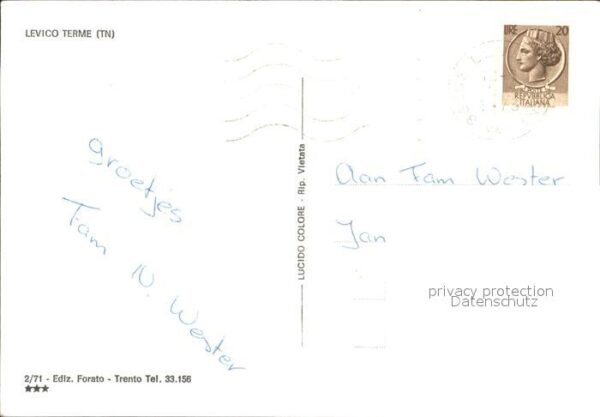 LEVICO TERME (TN)
LIRE 20
POSTE
REPVBBLICA
ITALIANA
groetjes
Fam N. Wester
LUCIDO COLORE - Rip. Vietata
Aan Fam Wester
Jan
privacy protection
Datenschutz
2/71 - Ediz. Forato - Trento Tel. 33.156
★★★